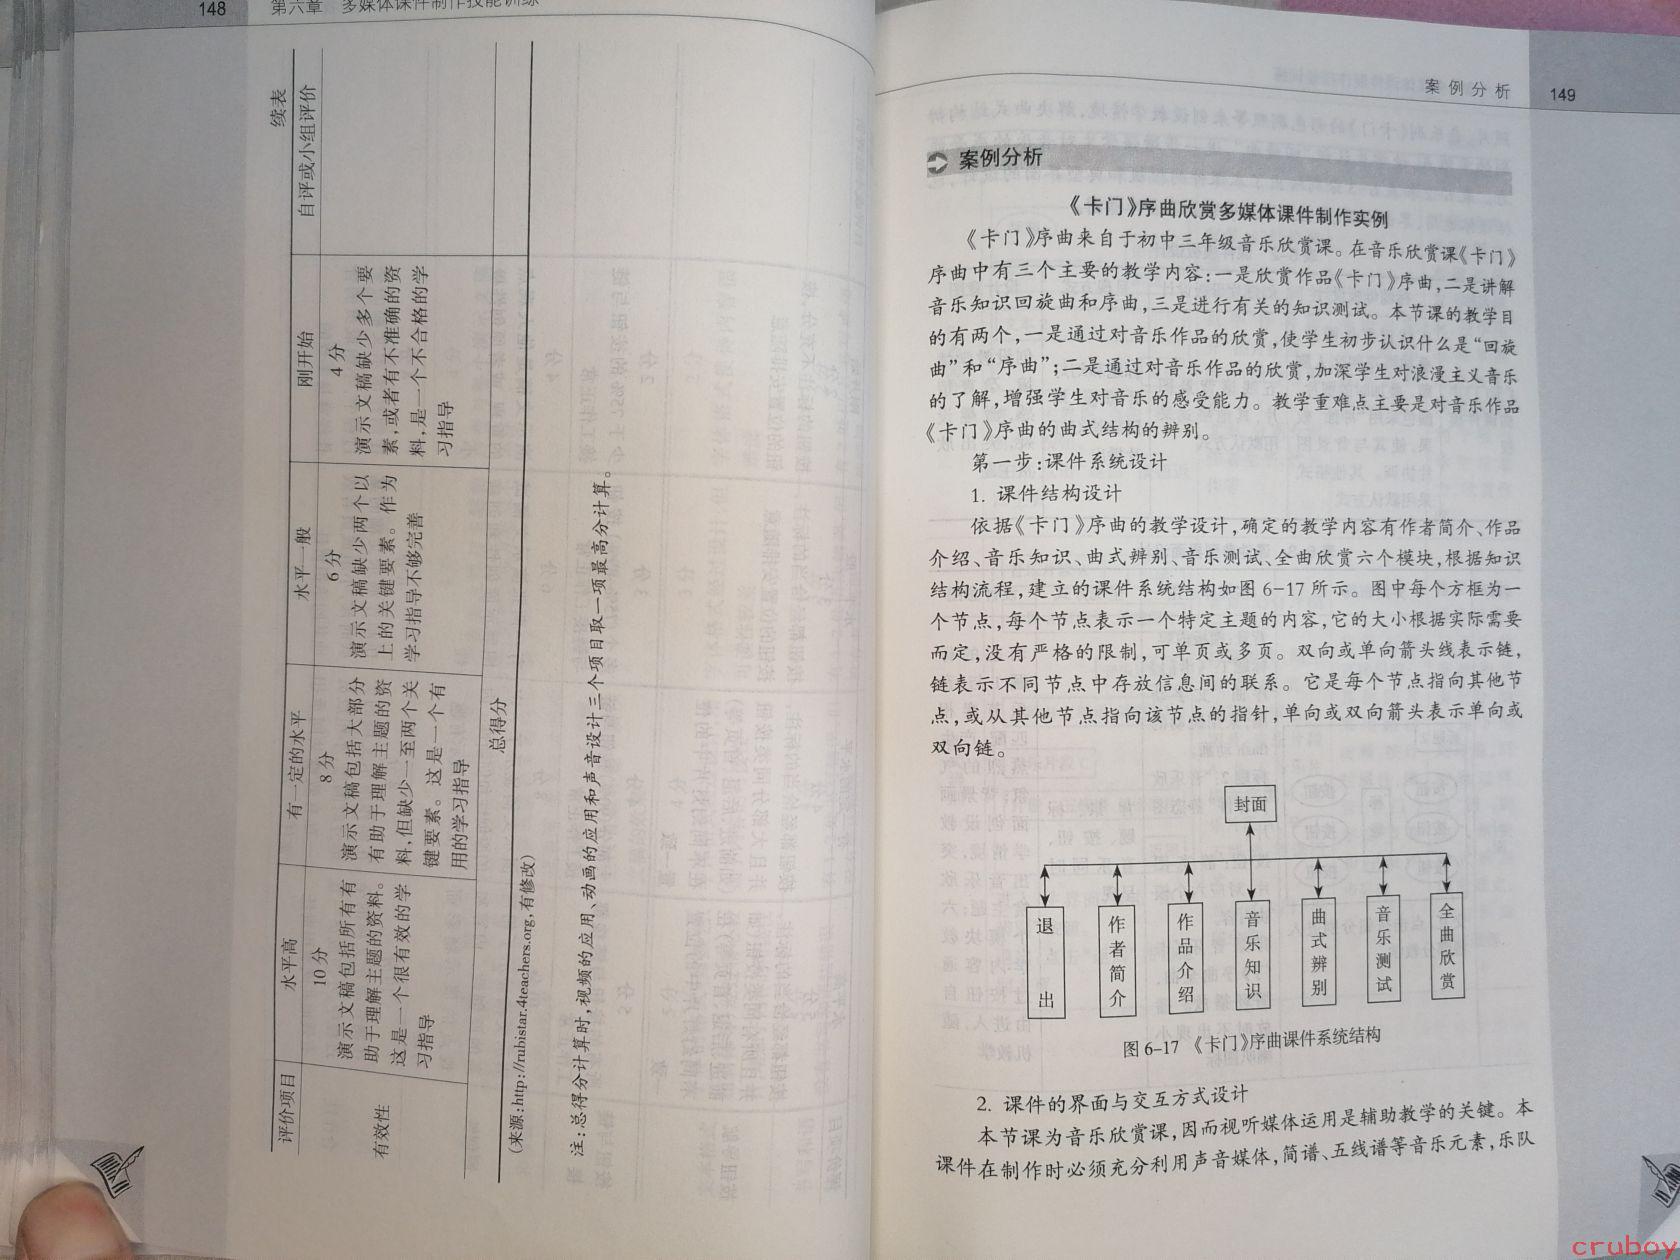 148 第六章 多媒体课件制作技能训练
续表
评价项目 水平高 有一定的水平 水平一般 刚开始 自评或小组评价
有效性
10分
演示文稿包括所有有
助于理解主题的资料。
这是一个很有效的学
习指导
8分
演示文稿包括大部分
有助于理解主题的资
料,但缺少一至两个关
键要素。这是一个有
用的学习指导
6分
演示文稿缺少两个以
上的关键要素。作为
学习指导不够完善
4分
演示文稿缺少多个要
素,或者有不准确的资
料,是一个不合格的学
习指导
总得分
(来源:http://rubistar.4teachers.org,有修改)
注:总得分计算时,视频的应用、动画的应用和声音设计三个项目取一项最高分计算。
案例分析 149
案例分析
《卡门》序曲欣赏多媒体课件制作实例
《卡门》序曲来自于初中三年级音乐欣赏课。在音乐欣赏课《卡门》
序曲中有三个主要的教学内容:一是欣赏作品《卡门》序曲,二是讲解
音乐知识回旋曲和序曲,三是进行有关的知识测试。本节课的教学目
的有两个,一是通过对音乐作品的欣赏,使学生初步认识什么是“回旋
曲”和“序曲”;二是通过对音乐作品的欣赏,加深学生对浪漫主义音乐
的了解,增强学生对音乐的感受能力。教学重难点主要是对音乐作品
《卡门》序曲的曲式结构的辨别。
第一步:课件系统设计
1. 课件结构设计
依据《卡门》序曲的教学设计,确定的教学内容有作者简介、作品
介绍、音乐知识、曲式辨别、音乐测试、全曲欣赏六个模块,根据知识
结构流程,建立的课件系统结构如图6-17所示。图中每个方框为一
个节点,每个节点表示一个特定主题的内容,它的大小根据实际需要
而定,没有严格的限制,可单页或多页。双向或单向箭头线表示链,
链表示不同节点中存放信息间的联系。它是每个节点指向其他节
点,或从其他节点指向该节点的指针,单向或双向箭头表示单向或
双向链。
封面
退出
作者简介
作品介绍
音乐知识
曲式辨别
音乐测试
全曲欣赏
图6-17 《卡门》序曲课件系统结构
2. 课件的界面与交互方式设计
本节课为音乐欣赏课,因而视听媒体运用是辅助教学的关键。本
课件在制作时必须充分利用声音媒体,简谱、五线谱等音乐元素,乐队
cruboy